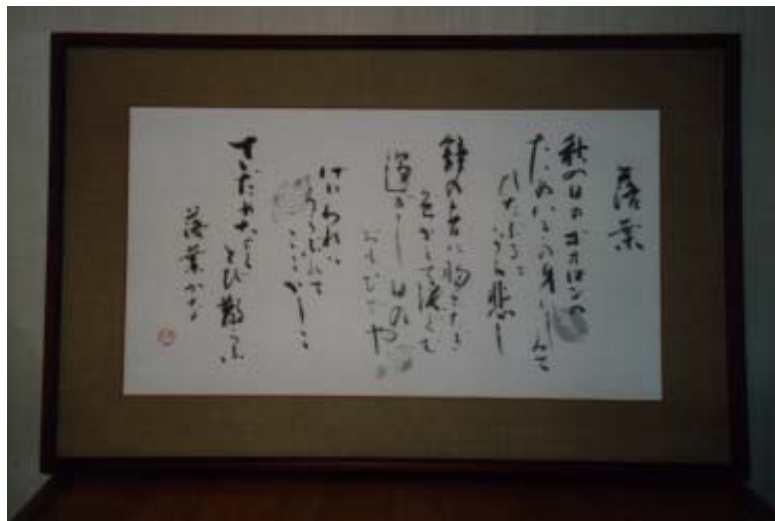 落葉
秋の日のヸオロンの
ためいきの身にしみて
ひたぶるに
うら悲し
鐘の音に胸ふたぎ
色かへて涙ぐむ
過ぎし日の
おもひでや
げにわれは
うらぶれて
こゝかしこ
さだめなく
とび散らふ
落葉かな